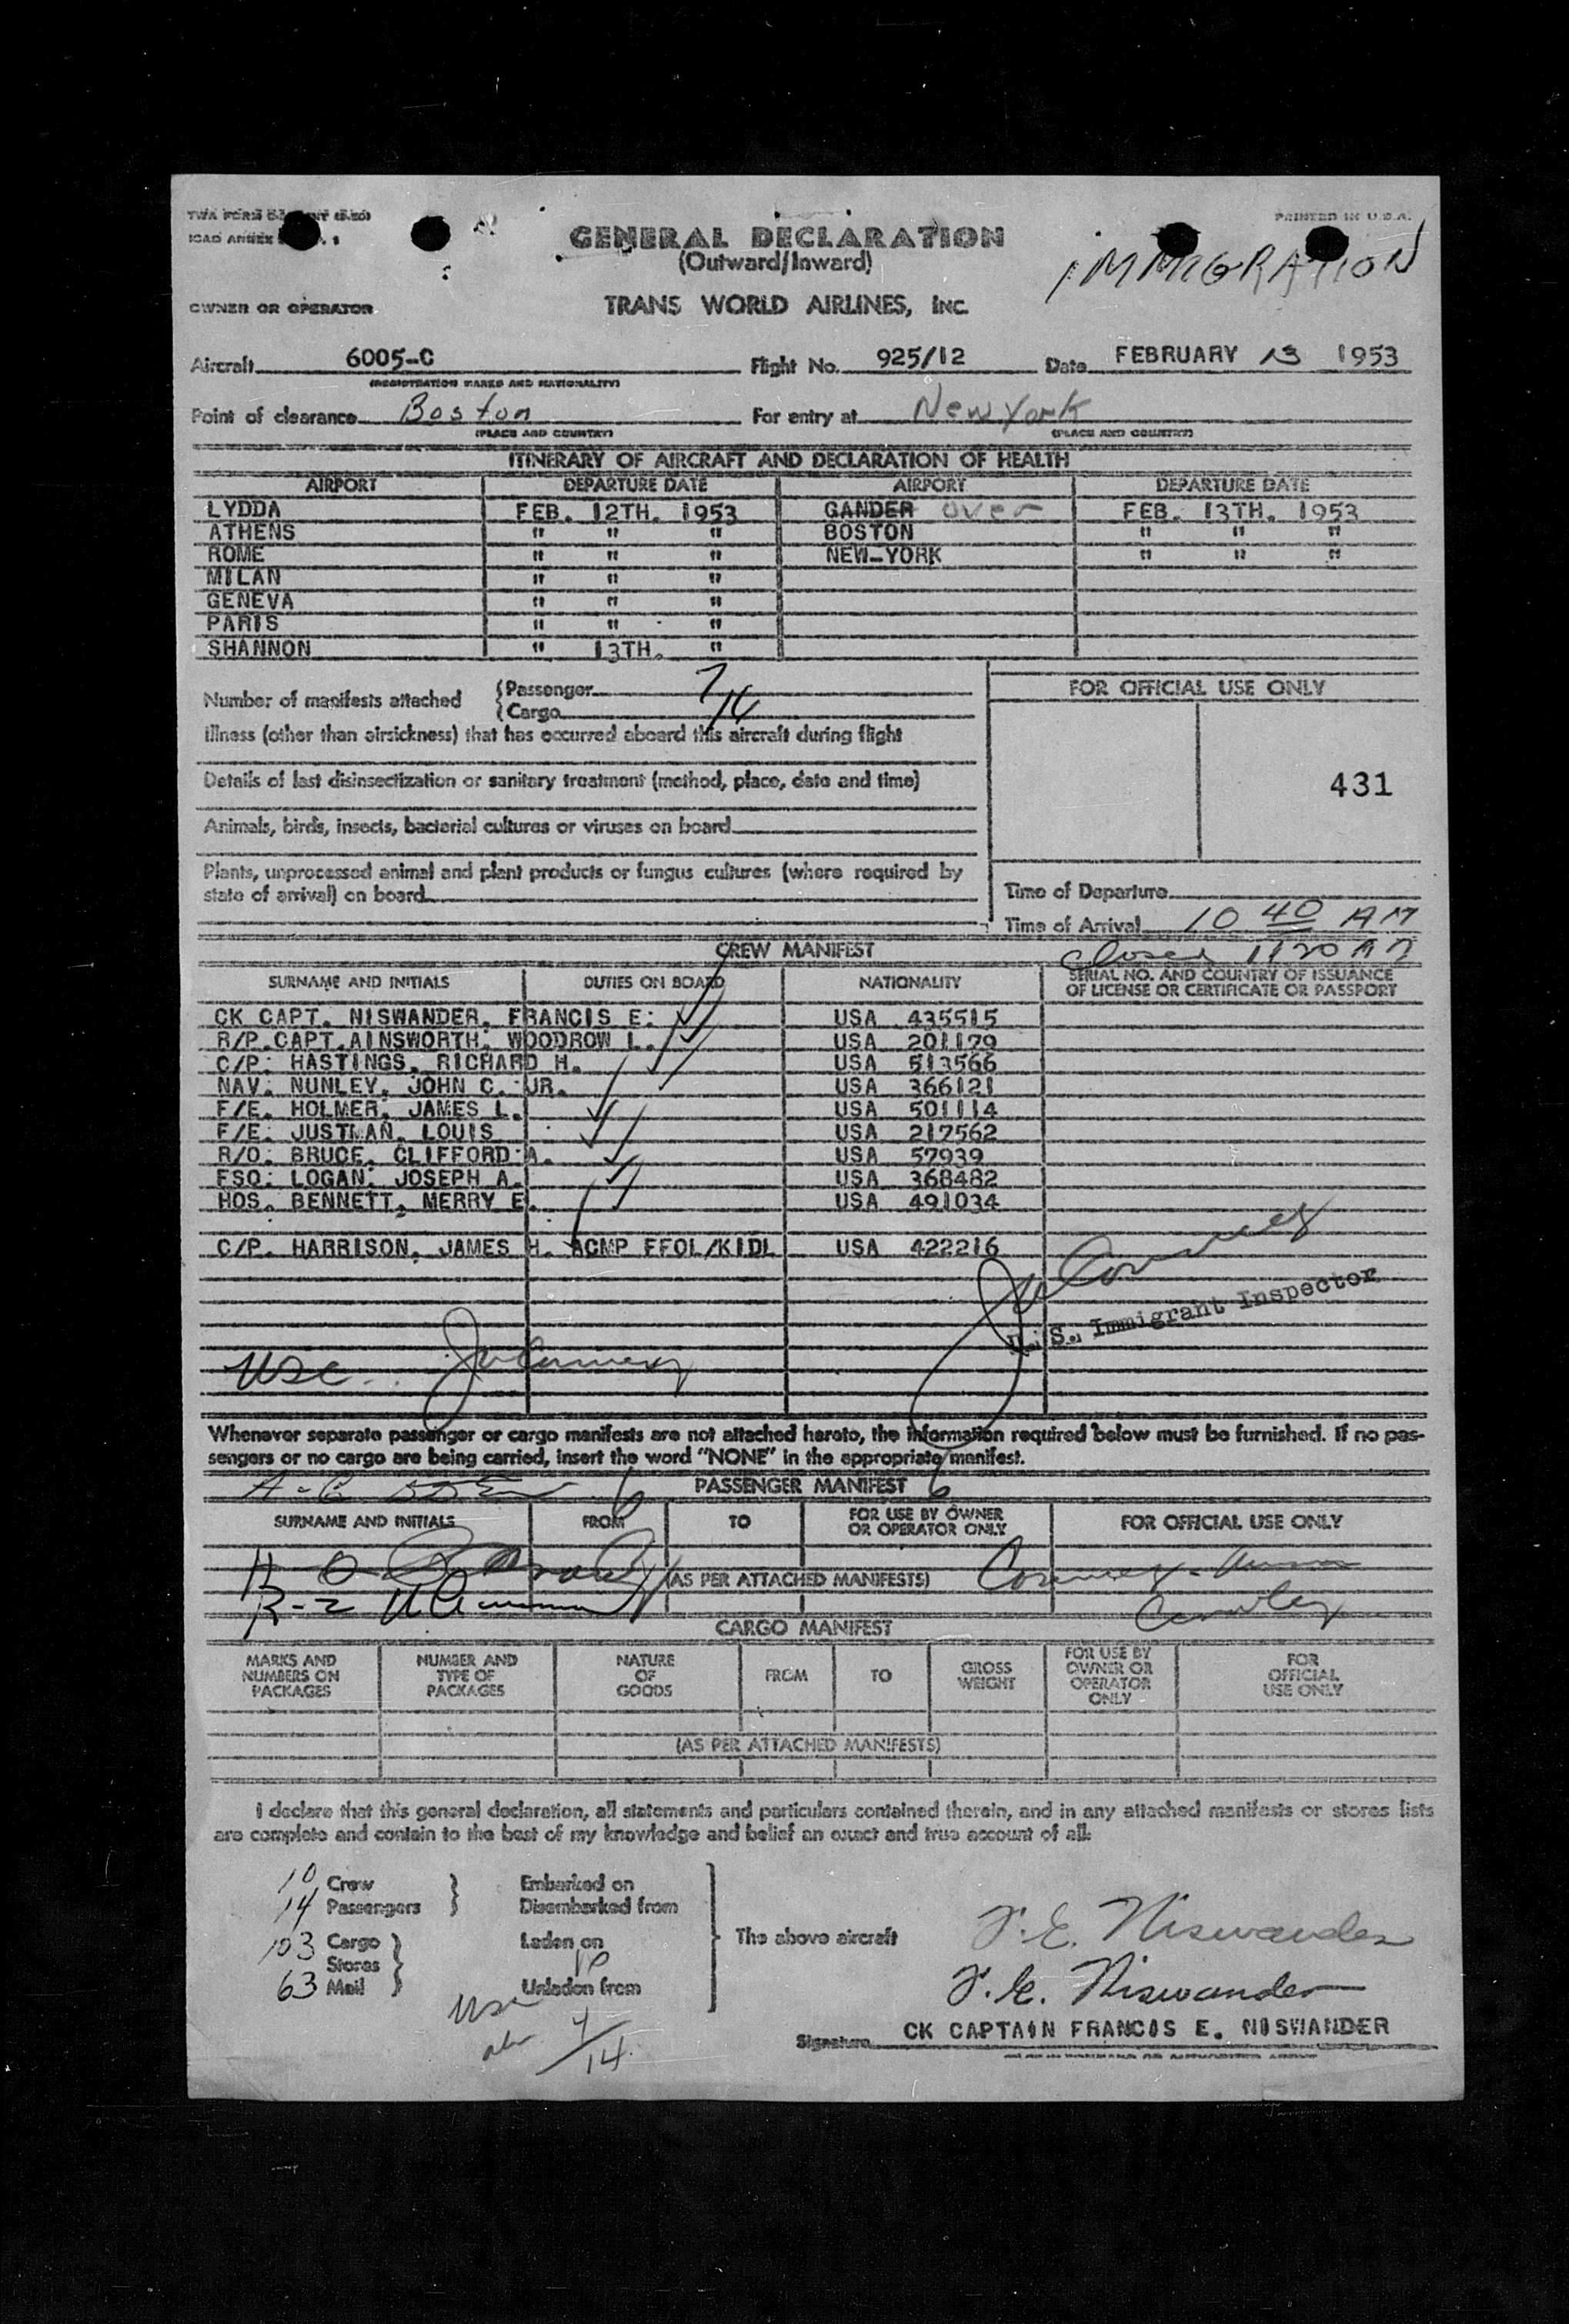 PRINTED IN U.S.A.
GENERAL DECLARATION
(Outward/Inward)
IMMIGRATION
OWNER OR OPERATOR TRANS WORLD AIRLINES, INC.
Aircraft 6005-C Flight No. 925/12 Date FEBRUARY 13 1953
(REGISTRATION MARKS AND NATIONALITY)
Point of clearance Boston For entry at New York
(PLACE AND COUNTRY) (PLACE AND COUNTRY)
ITINERARY OF AIRCRAFT AND DECLARATION OF HEALTH
AIRPORT DEPARTURE DATE AIRPORT DEPARTURE DATE
LYDDA FEB. 12TH. 1953 GANDER over FEB. 13TH. 1953
ATHENS " " " BOSTON " " "
ROME " " " NEW-YORK " " "
MILAN " " "
GENEVA " " "
PARIS " " "
SHANNON " 13TH. "
Number of manifests attached {Passenger 7
{Cargo 14
FOR OFFICIAL USE ONLY
Illness (other than airsickness) that has occurred aboard this aircraft during flight
Details of last disinsectization or sanitary treatment (method, place, date and time)
431
Animals, birds, insects, bacterial cultures or viruses on board
Plants, unprocessed animal and plant products or fungus cultures (where required by
state of arrival) on board
Time of Departure
Time of Arrival 10 40 AM
CREW MANIFEST closed 1120 AM
SURNAME AND INITIALS DUTIES ON BOARD NATIONALITY SERIAL NO. AND COUNTRY OF ISSUANCE OF LICENSE OR CERTIFICATE OR PASSPORT
CK CAPT. NISWANDER, FRANCIS E. USA 435515
R/P.CAPT.AINSWORTH. WOODROW L. USA 201179
C/P. HASTINGS, RICHARD H. USA 513566
NAV. NUNLEY, JOHN C. JR. USA 366121
F/E. HOLMER, JAMES L. USA 501114
F/E. JUSTMAN, LOUIS USA 217562
R/O. BRUCE, CLIFFORD A. USA 57939
FSO. LOGAN, JOSEPH A. USA 368482
HOS. BENNETT, MERRY E. USA 491034
C/P. HARRISON, JAMES H. ACMP FFOL/KIDL USA 422216
U. S. Immigrant Inspector
USC
Whenever separate passenger or cargo manifests are not attached hereto, the information required below must be furnished. If no pas-
sengers or no cargo are being carried, insert the word "NONE" in the appropriate manifest.
PASSENGER MANIFEST
SURNAME AND INITIALS FROM TO FOR USE BY OWNER OR OPERATOR ONLY FOR OFFICIAL USE ONLY
(AS PER ATTACHED MANIFESTS)
CARGO MANIFEST
MARKS AND NUMBERS ON PACKAGES NUMBER AND TYPE OF PACKAGES NATURE OF GOODS FROM TO GROSS WEIGHT FOR USE BY OWNER OR OPERATOR ONLY FOR OFFICIAL USE ONLY
(AS PER ATTACHED MANIFESTS)
I declare that this general declaration, all statements and particulars contained therein, and in any attached manifests or stores lists
are complete and contain to the best of my knowledge and belief an exact and true account of all:
10 Crew } Embarked on
14 Passengers } Disembarked from
103 Cargo } Laden on The above aircraft F. E. Niswander
Stores
63 Mail } Unladen from F. E. Niswander
Signature CK CAPTAIN FRANCIS E. NISWANDER